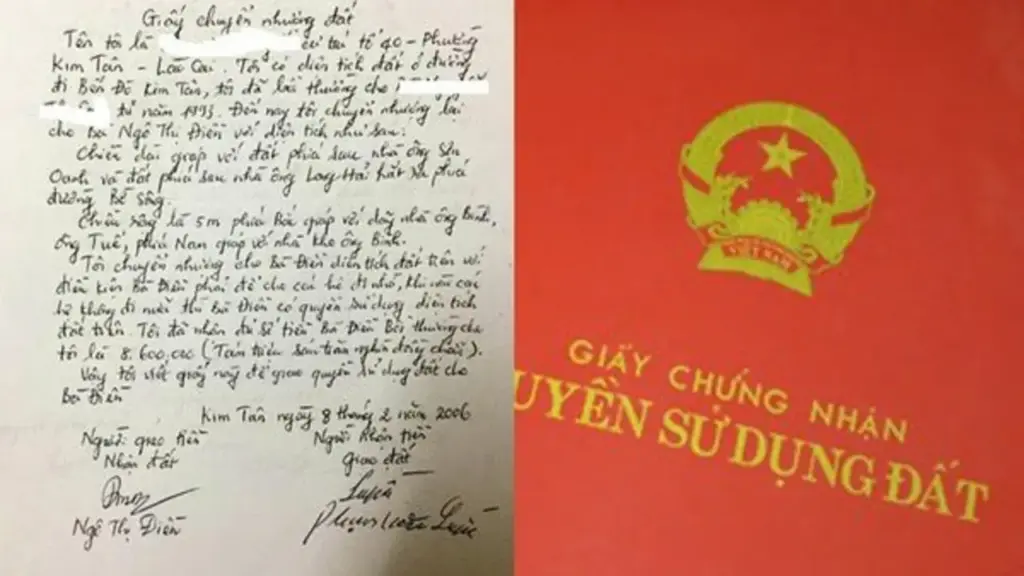 Giấy chuyển nhượng đất
Tên tôi là cư tại tổ 40 - Phường
Kim Tân - Lào Cai. Tôi có diện tích đất ở đường
đi Bến Đò Kim Tân, tôi đã bồi thường cho
từ năm 1993. Đến nay tôi chuyển nhượng lại
cho bà Ngô Thị Điền với diện tích như sau:
Chiều dài giáp với đất phía sau nhà ông Sửu
Oanh và đất phía sau nhà ông Long Hải hắt ra phía
đường Bờ Sông.
Chiều rộng là 5m phía Bắc giáp với dãy nhà ông Bình,
ông Tuế, phía Nam giáp với nhà kho ông Bình.
Tôi chuyển nhượng cho Bà Điền diện tích đất trên với
điều kiện Bà Điền phải để cho các hộ đi nhờ, khi nào các
hộ không đi nữa thì Bà Điền có quyền sử dụng diện tích
đất trên. Tôi đã nhận đủ số tiền Bà Điền Bồi thường cho
tôi là 8.600,000 (Tám triệu sáu trăm nghìn đồng chẵn).
Vậy tôi viết giấy này để giao quyền sử dụng đất cho
Bà Điền
Kim Tân ngày 8 tháng 2 năm 2006
Người giao tiền
Nhận đất
Ngô Thị Điền
Người nhận tiền
giao đất
VIỆT NAM
GIẤY CHỨNG NHẬN
UYỀN SỬ DỤNG ĐẤT